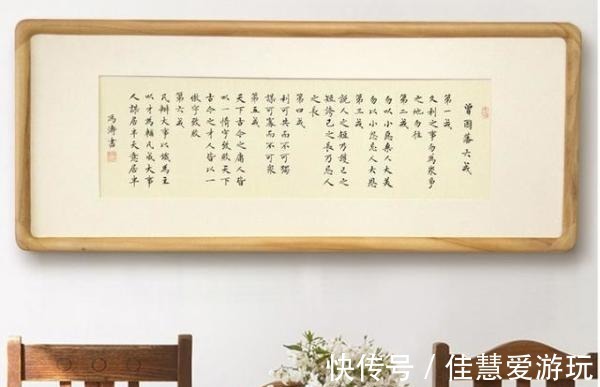 曾國藩六戒
第一戒
久利之事勿為衆爭
之地勿往
第二戒
勿以小惡棄人大美
勿以小怨忘人大恩
第三戒
説人之短乃護己之
短誇己之長乃忌人
之長
第四戒
利可共而不可獨
謀可寡而不可衆
第五戒
天下古今之庸人皆
以一惰字致敗天下
古今之才人皆以一
傲字致敗
第六戒
凡辦大事以識為主
以才為輔凡成大事
人謀居半天意居半
馮濤書
快传号 / 佳慧爱游玩